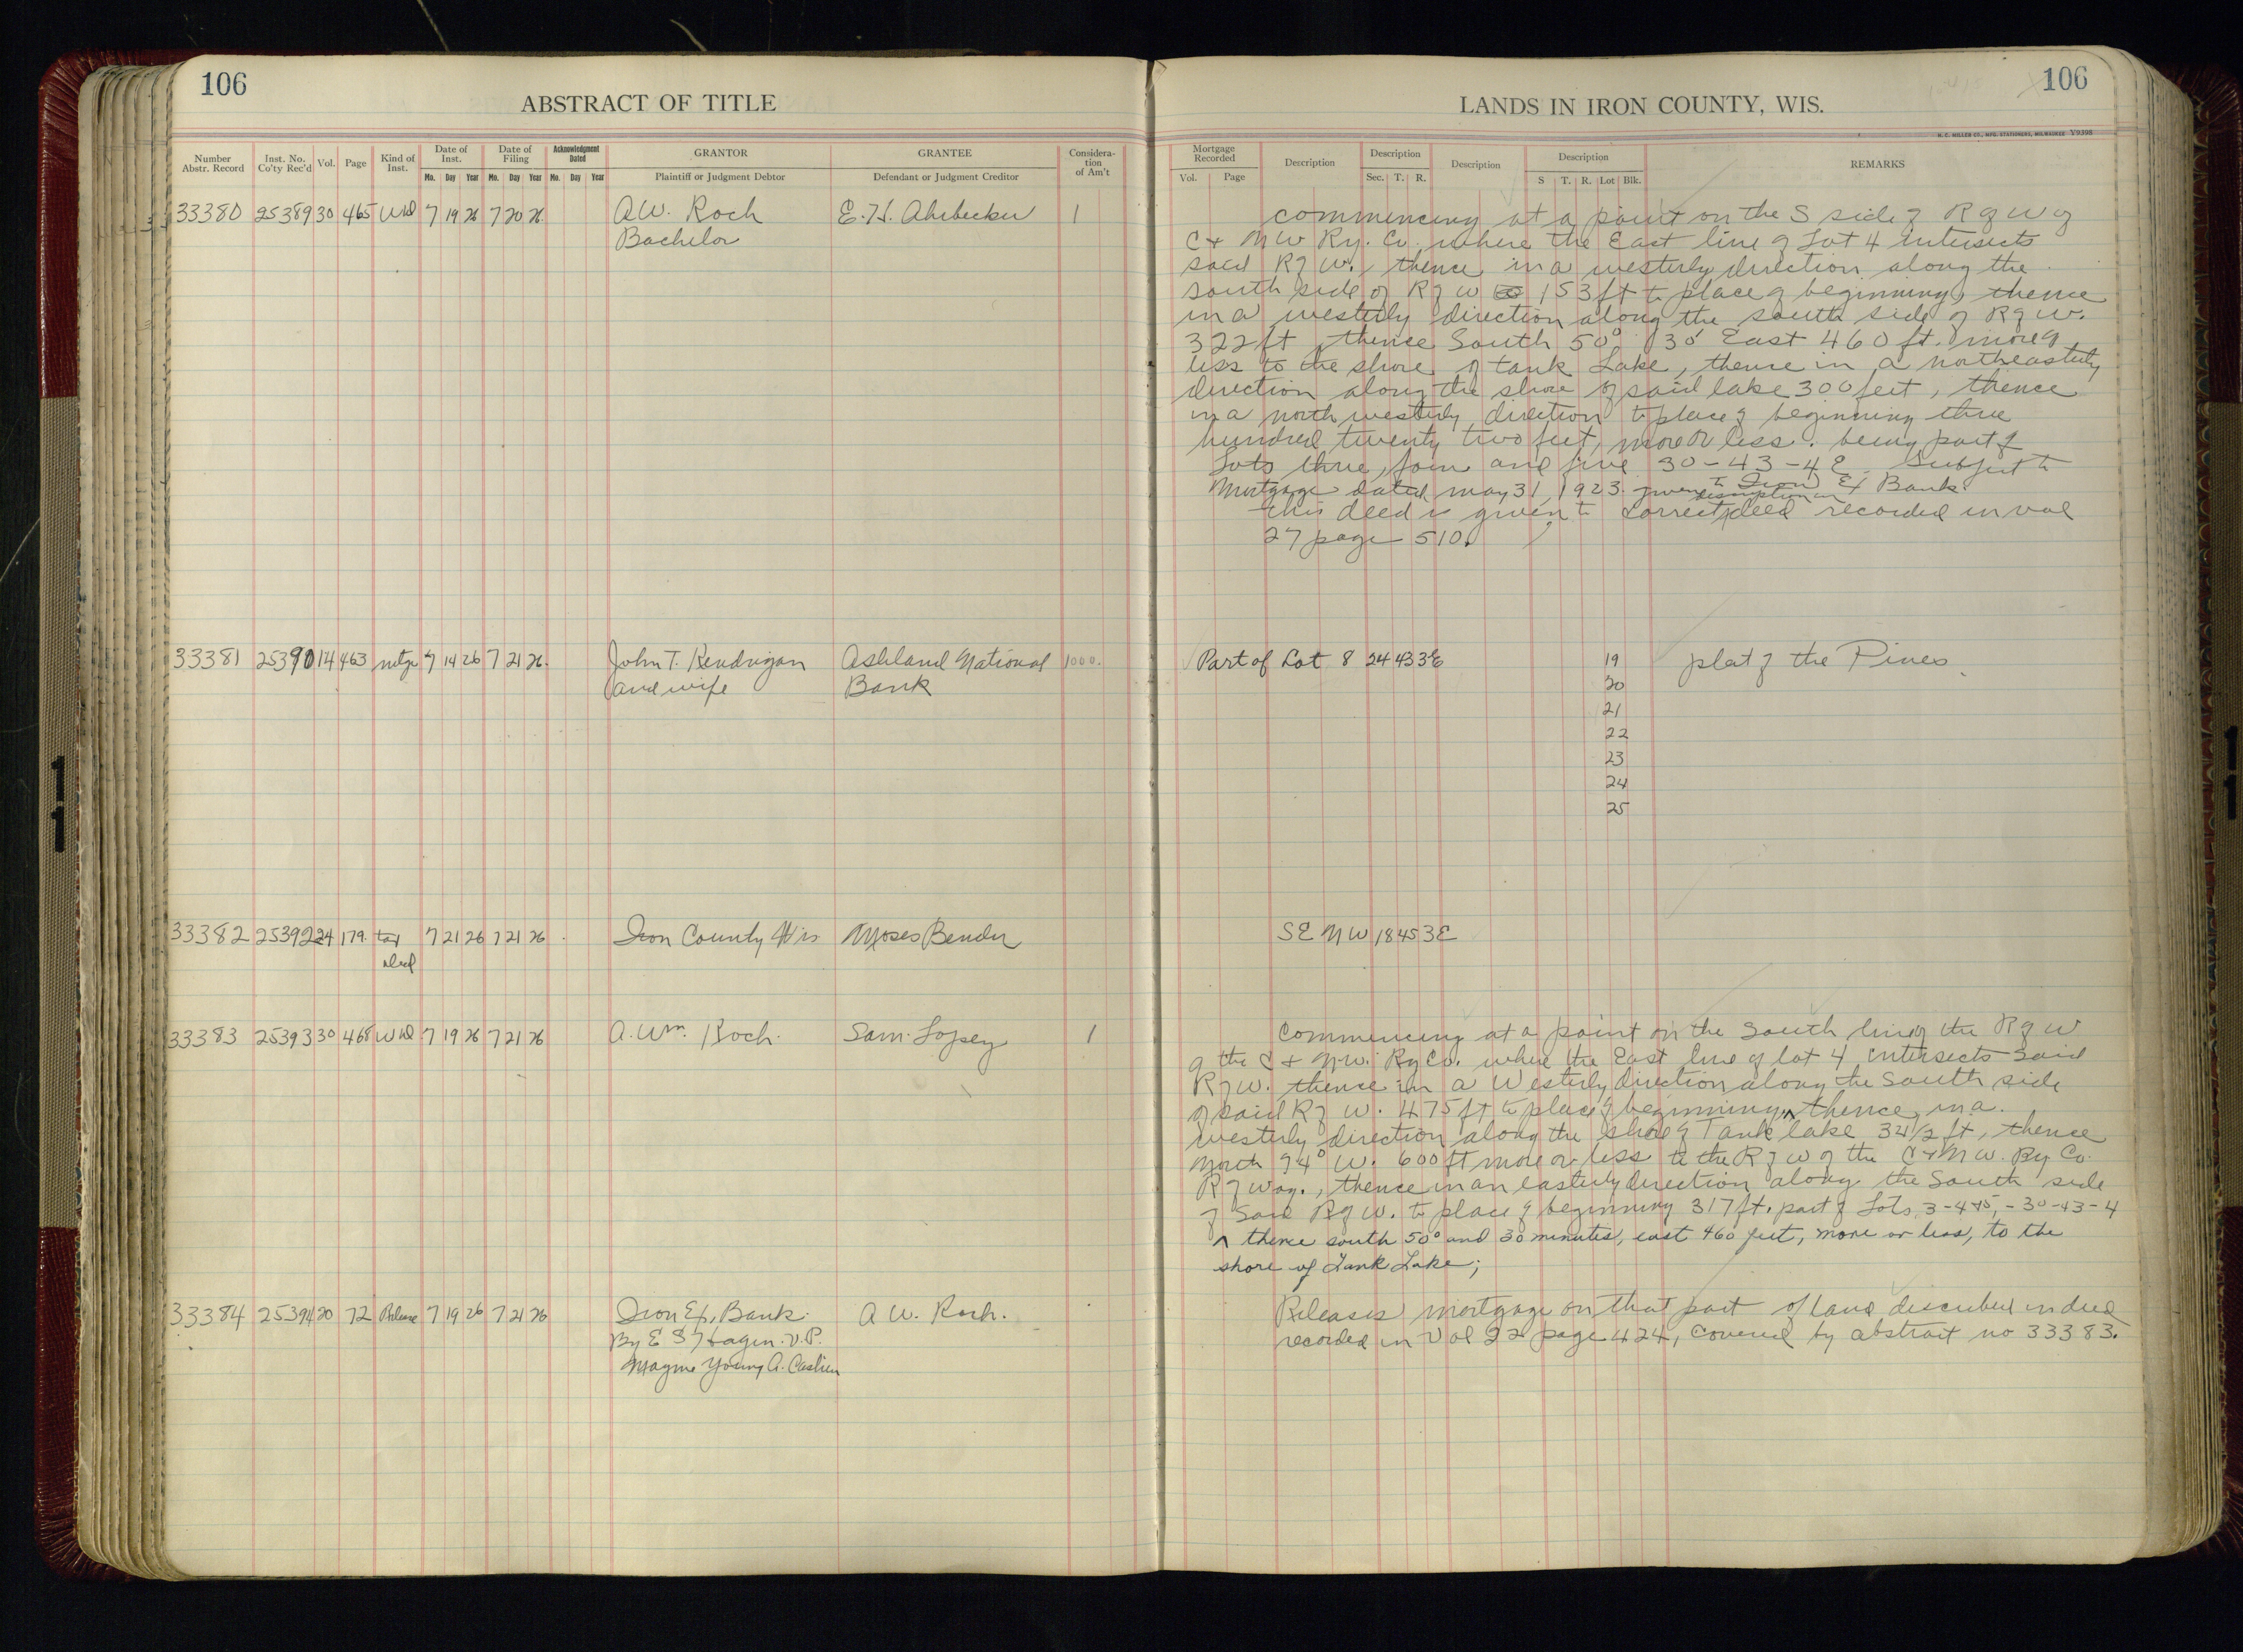 106
ABSTRACT OF TITLE
Number Abstr. Record
Inst. No. Co'ty Rec'd
Vol.
Page
Kind of Inst.
Date of Inst.
Mo. Day Year
Date of Filing
Mo. Day Year
Acknowledgment Dated
Mo. Day Year
GRANTOR
Plaintiff or Judgment Debtor
GRANTEE
Defendant or Judgment Creditor
Considera-tion of Am't
33380 25389 30 465 Wd 7 19 26 7 20 26 A.W. Roch E. H. Ahrbecker 1
Bachelor
33381 25390 14 463 mtge 7 14 26 7 21 26. John T. Kendrigan Ashland National 1000.
and wife Bank
33382 25392 24 179. tax 7 21 26 7 21 26 Iron County Wis Moses Bender
deed
33383 25393 30 468 Wd 7 19 26 7 21 26 A. Wm. Roch. Sam. Lopsey 1
33384 25394 20 72 Release 7 19 26 7 21 26 Iron Ex, Bank. A W. Roch.
By E S Hagen. V.P.
Mayme Young A. Cashier
106
LANDS IN IRON COUNTY, WIS.
H. C. MILLER CO., MFG. STATIONERS, MILWAUKEE V9398
Mortgage Recorded
Vol. Page
Description
Description
Sec. T. R.
Description
Description
S T. R. Lot Blk.
REMARKS
commencing at a point on the S side of R of W of
C & N W Ry. Co. where the East line of Lot 4 intersects
said R of W., thence in a westerly direction along the
south side of R of W 153 ft to place of beginning, thence
in a westerly direction along the south side of R of W.
322 ft, thence South 50° 30' East 460 ft. more or
less to the shore of tank Lake, thence in a northeasterly
direction along the shore of said lake 300 feet, thence
in a north westerly direction to place of beginning three
hundred twenty two feet, more or less. being part of
Lots three, four and five 30-43-4E. Subject to
Mortgage dated may 31, 1923. given to Iron Ex Bank
description in
this deed is given to correct deed recorded in vol
27 page 510.
Part of Lot 8 24 43 3E 19 plat of the Pines
20
21
22
23
24
25
SE NW 18 45 3E
Commencing at a point on the South line of the R of W
of the C & N W. Ry Co. where the East line of lot 4 intersects said
R of W. thence in a Westerly direction along the South side
of said R of W. 475 ft to place of beginning, ^ thence in a
westerly direction along the shore of Tank lake 342 ft, thence
North 74° W. 600 ft more or less to the R of W of the C & N W. Ry Co.
R of way., thence in an easterly direction along the South side
of said R of W. to place of beginning 317 ft. part of Lots 3-4 & 5, - 30-43-4
^ thence south 50° and 30 minutes, east 460 feet, more or less, to the
shore of Tank Lake;
Releases mortgage on that part of land described in deed
recorded in Vol 22 page 424, covered by abstract no 33383.